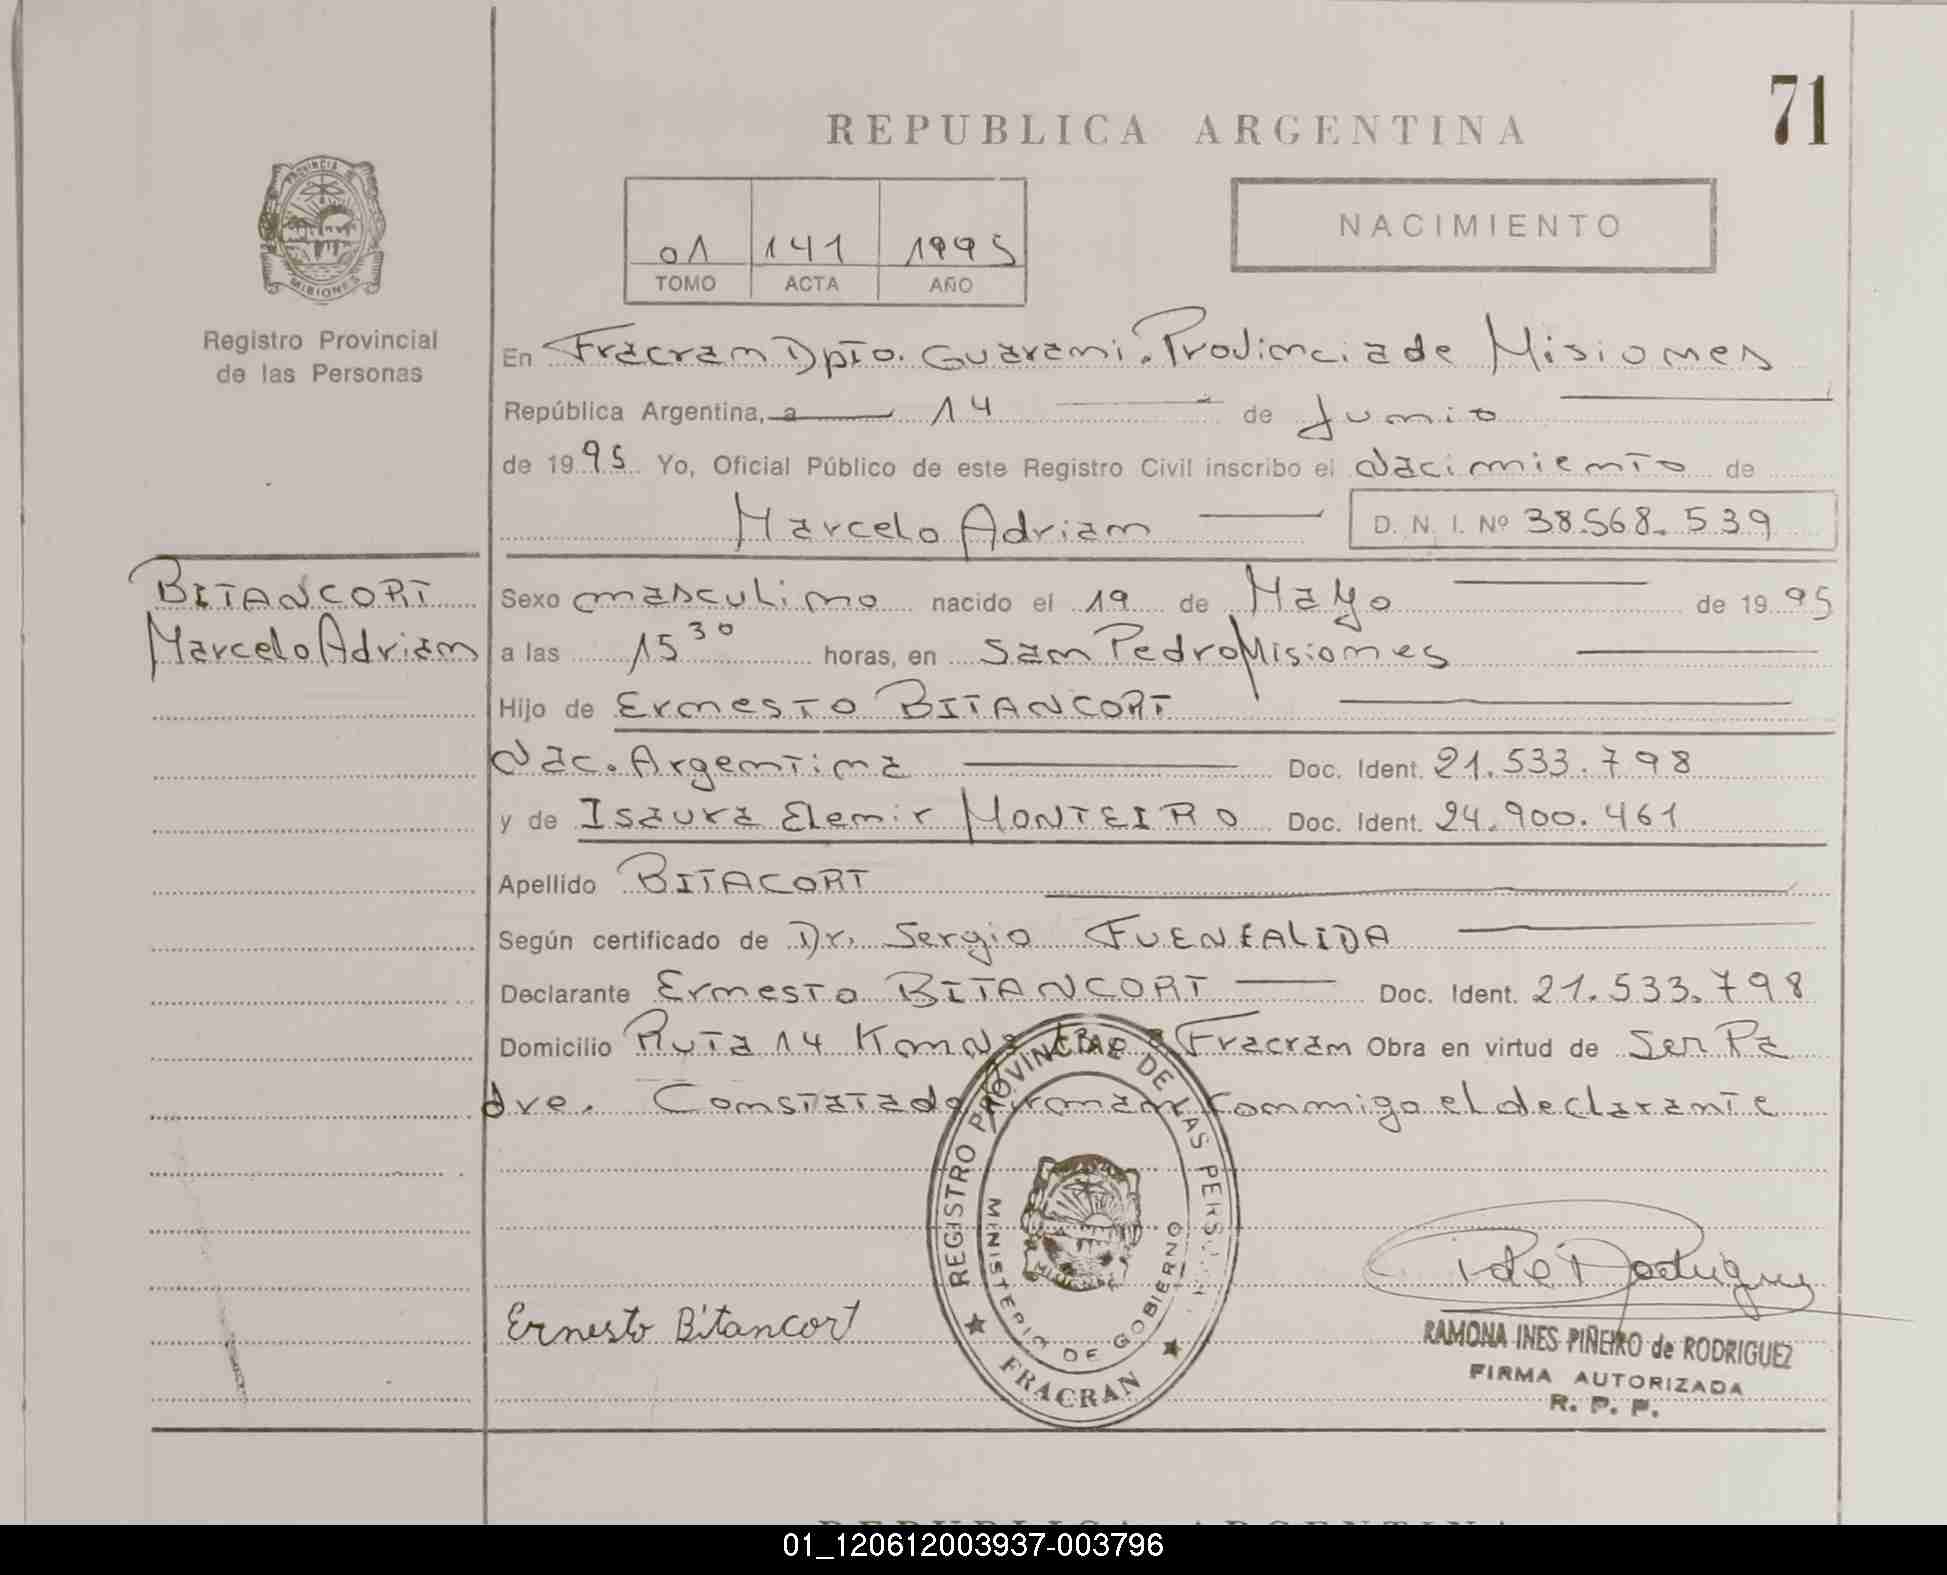 71
REPUBLICA ARGENTINA
PROVINCIA DE
MISIONES
Registro Provincial
de las Personas
NACIMIENTO
01 141 1995
TOMO ACTA AÑO
En Fracran Dpto. Guarani. Provincia de Misiones
República Argentina, a 14 de Junio
de 1995 Yo, Oficial Público de este Registro Civil inscribo el Nacimiento de
Marcelo Adrian D. N. I. Nº 38.568.539
BITANCORT
Marcelo Adrian
Sexo masculino nacido el 19 de Mayo de 1995
a las 15 30 horas, en San Pedro Misiones
Hijo de Ernesto BITANCORT
Nac. Argentina Doc. Ident. 21.533.798
y de Isaura Elenir MONTEIRO Doc. Ident. 24.900.461
Apellido BITACORT
Según certificado de Dr. Sergio FUENEALIDA
Declarante Ernesto BITANCORT Doc. Ident. 21.533.798
Domicilio Ruta 14 Fracran Obra en virtud de Ser Pa
dre. Constatado Firman Conmigo el declarante
REGISTRO PROVINCIAL DE LAS PERS
MINISTERIO DE GOBIERNO
MISIONES
FRACRAN
Ernesto Bitancort
P de Rodriguez
RAMONA INES PIÑEIRO de RODRIGUEZ
FIRMA AUTORIZADA
R. P. P.
REPUBLICA ARGENTINA
01_120612003937-003796